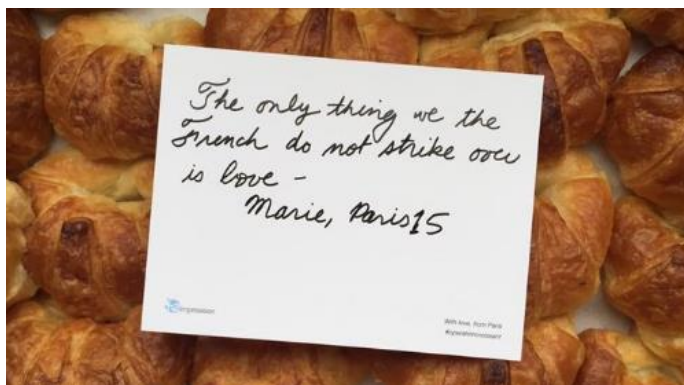 The only thing we the
French do not strike over
is love -
Marie, Paris15
With love, from Paris